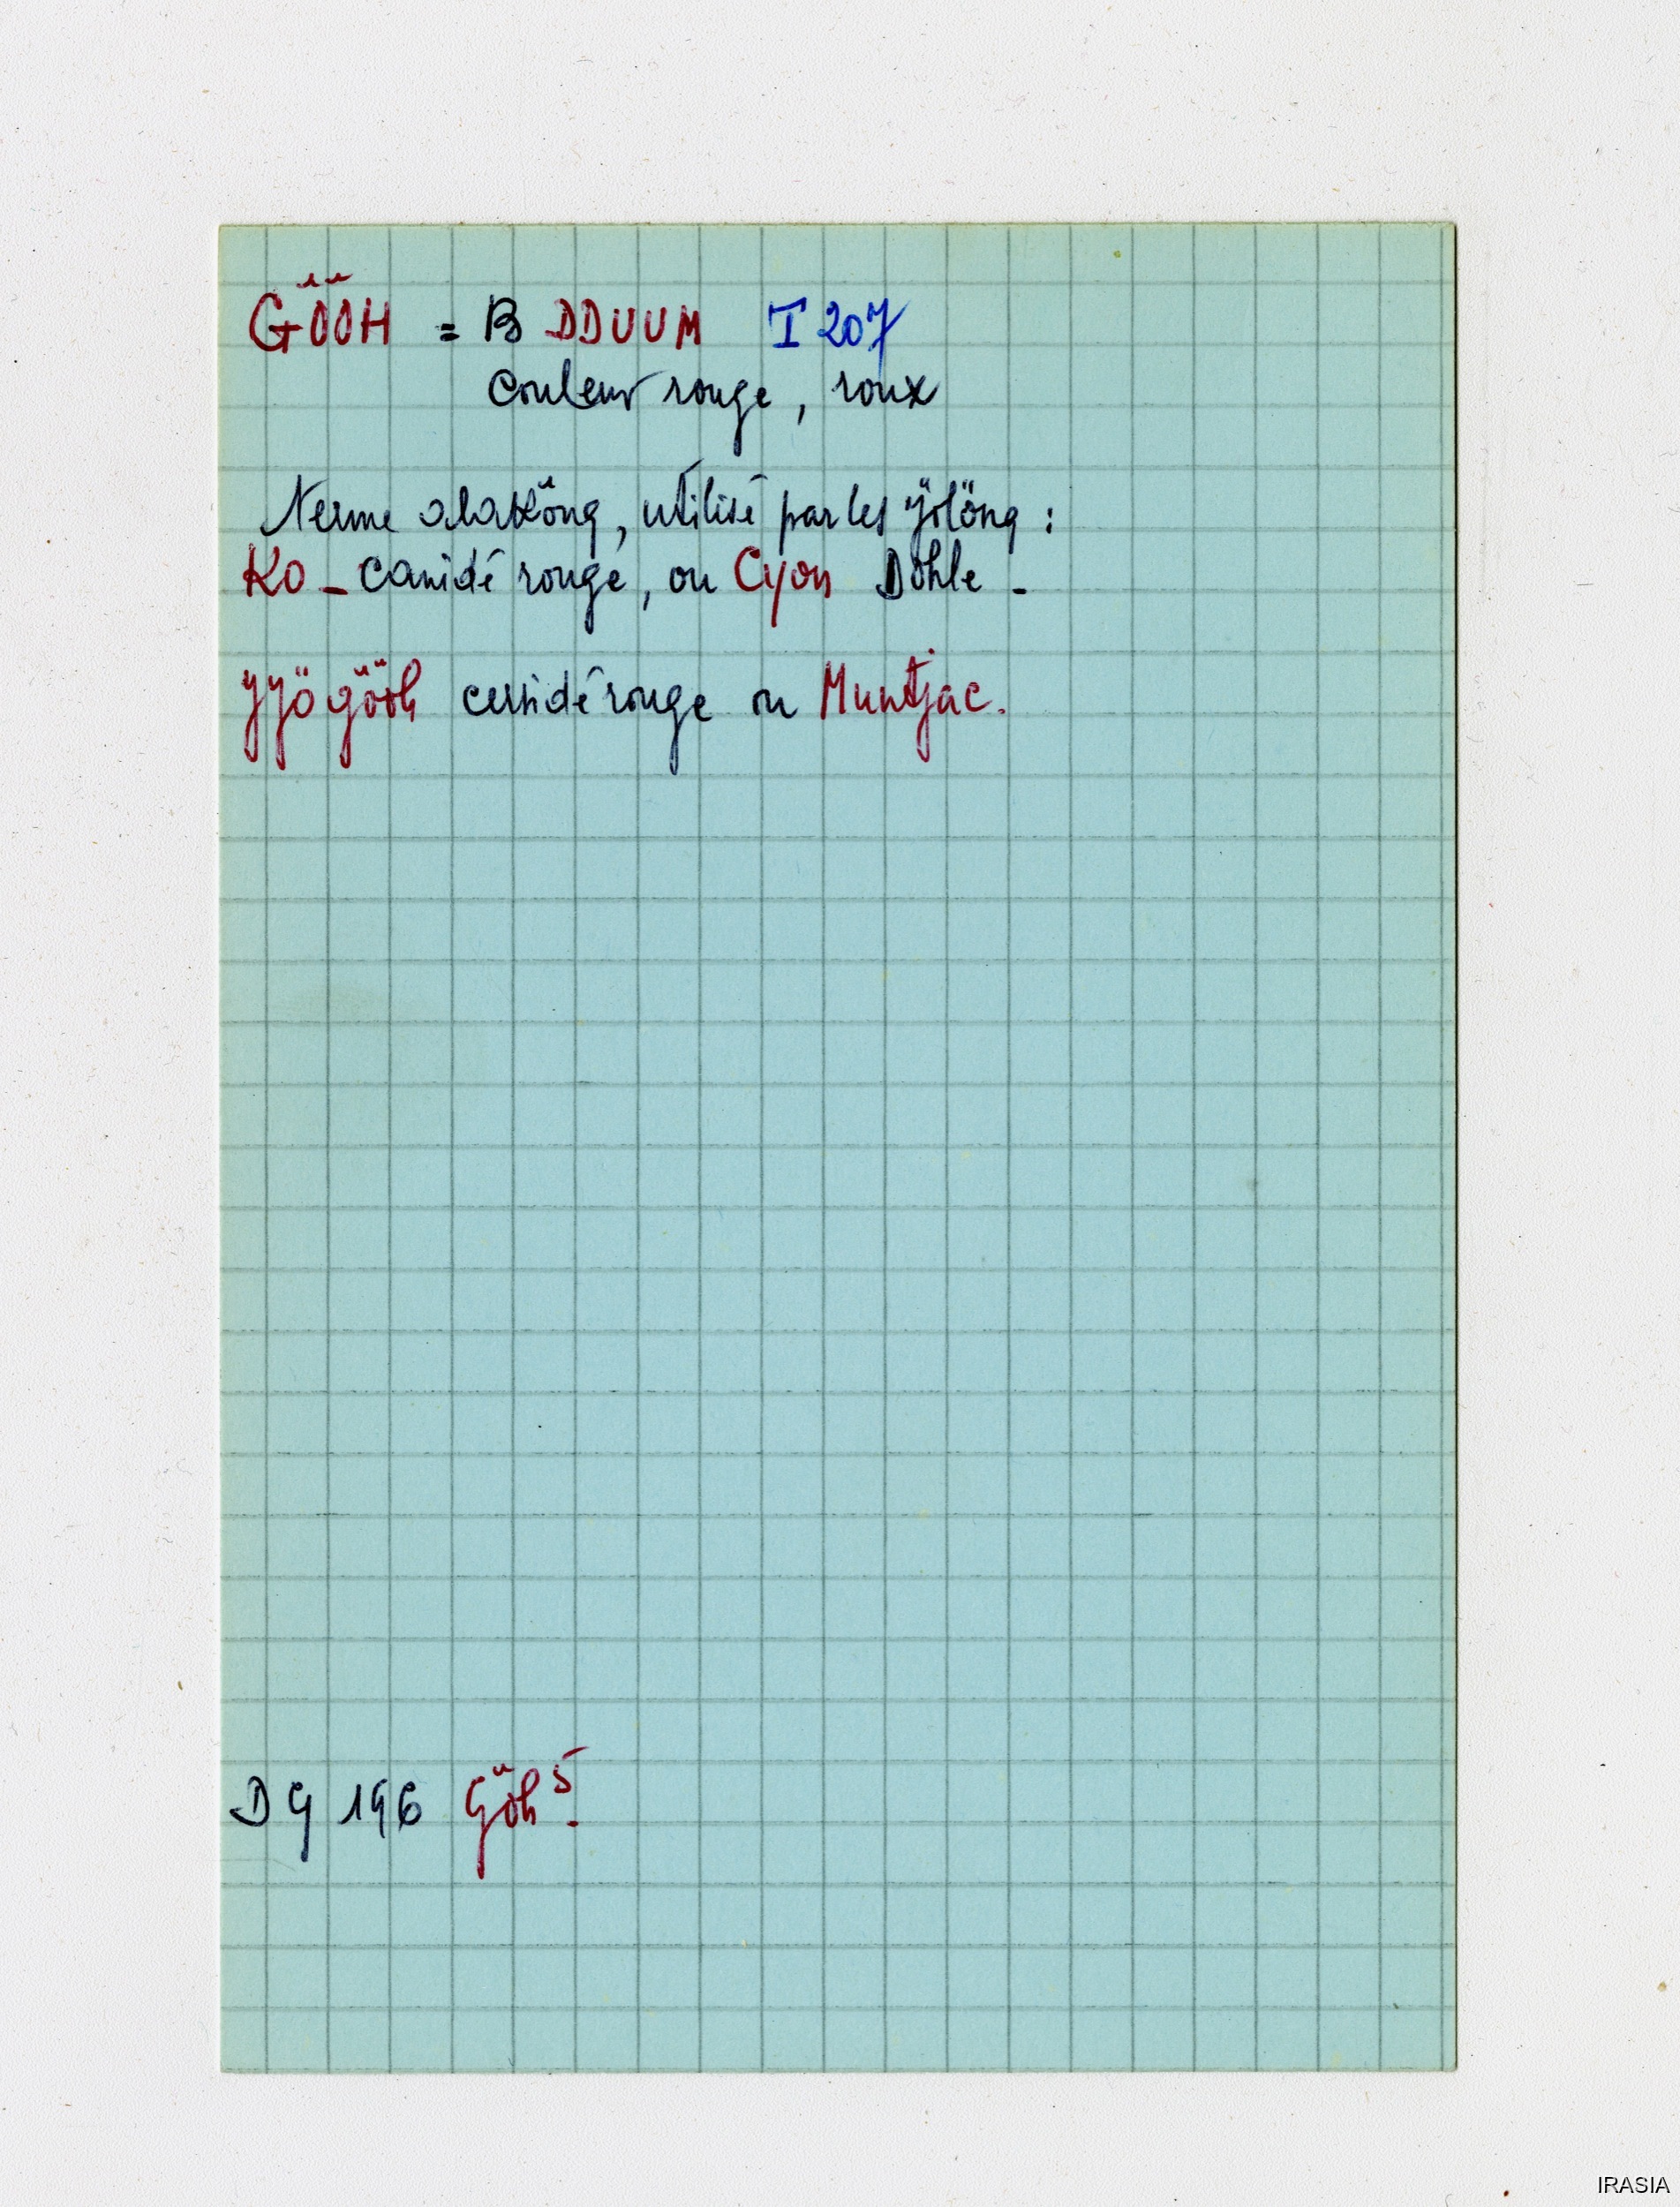 GÖÖH = B DDUUM I 207
Couleur rouge, roux
Terme alaköng, utilisé par les yölöng :
KO - Canidé rouge, ou Cyon Dohle -
yyögööh cervidé rouge ou Muntjac.
DG 196 Göh 5.
IRASIA